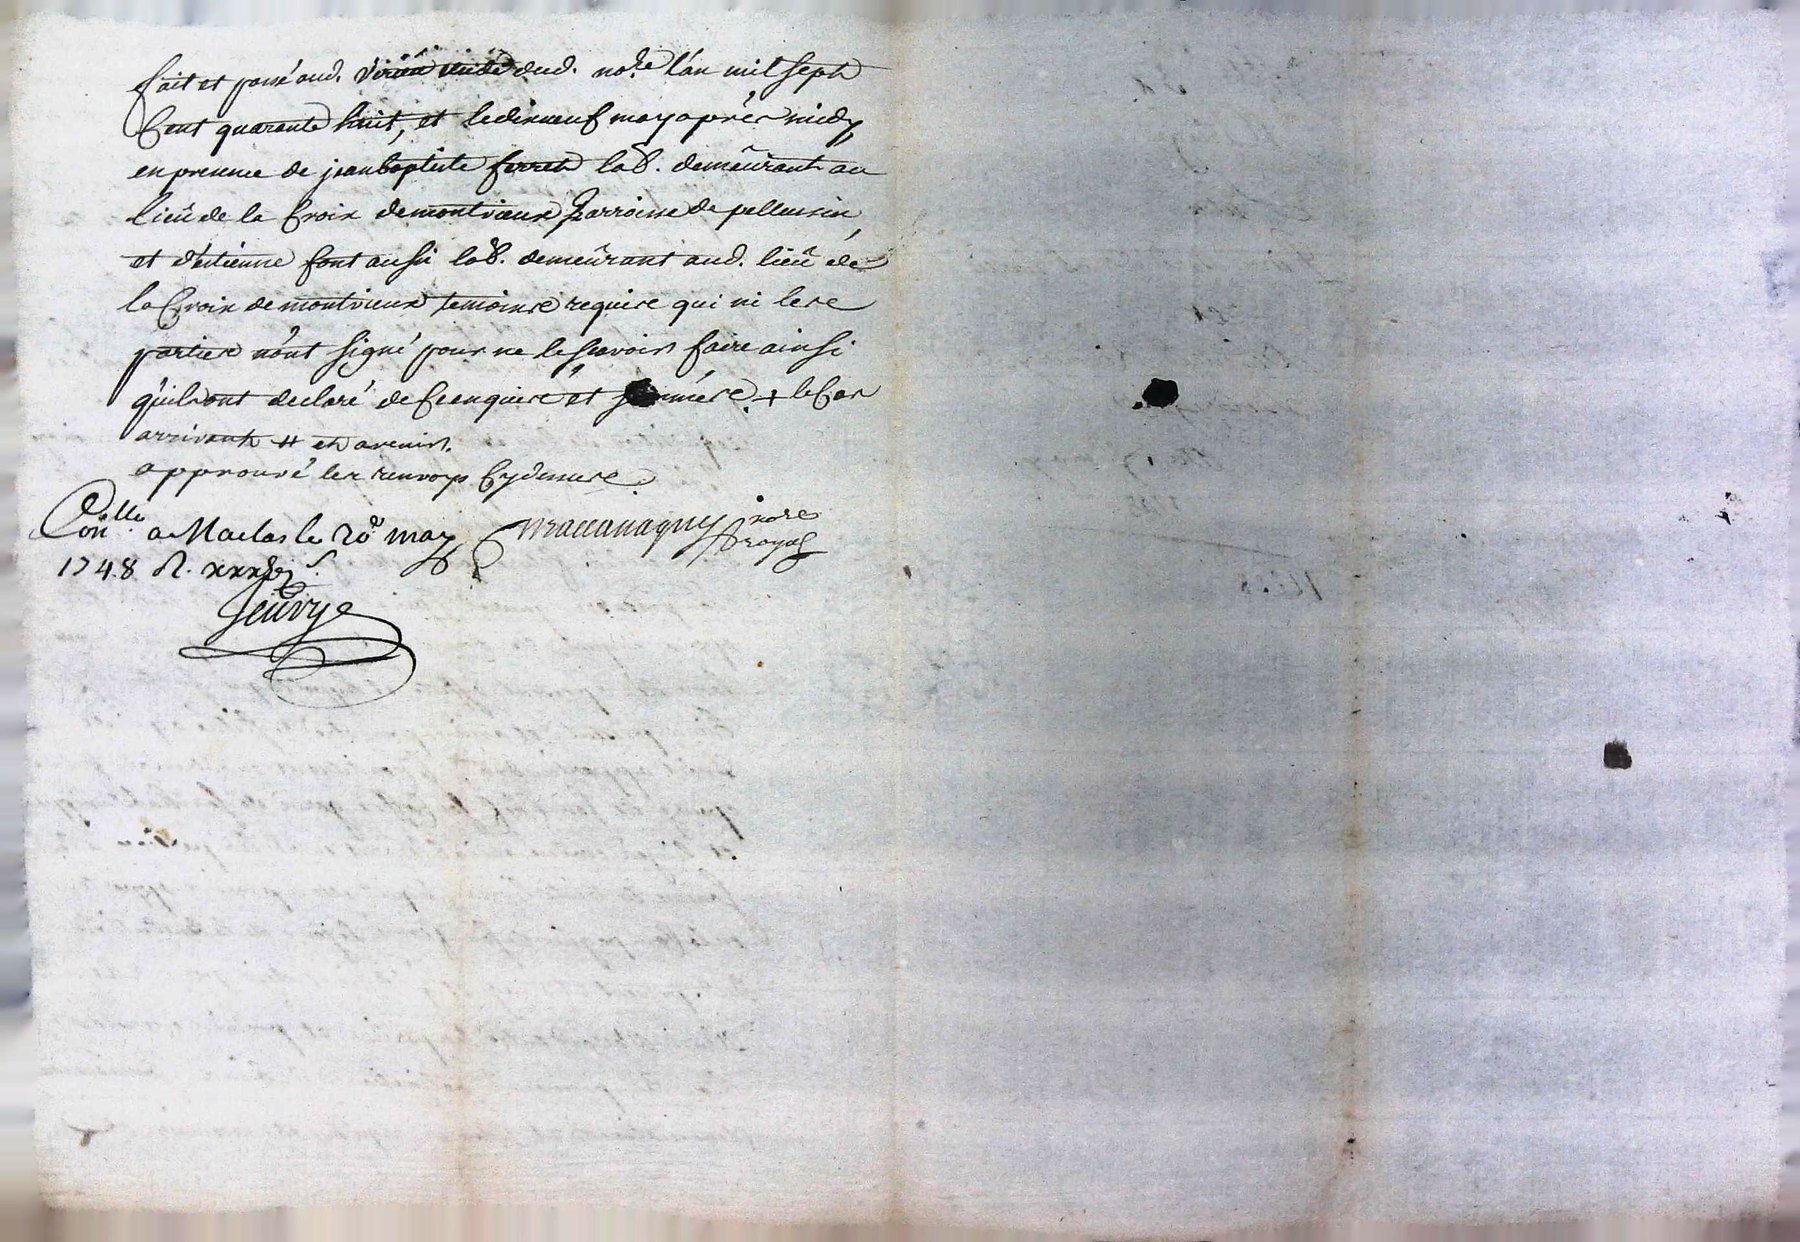 fait et passé aud. virieu étude dud. no.re l'an mil sept
Cent quarante huit, et le dixneuf may après midy
en presence de jean baptiste forrest lab. demeurant au
lieu de la Croix de montvieux parroisse de pellussin,
et d'estienne font aussi lab. demeurant aud. lieû de
la Croix de montvieux temoins requis qui ni les
parties n'ont signé pour ne le sçavoir faire ainsi
qu'ils ont declaré de ce enquis et + le Cas
arrivant # et avenir.
approuvé les renvoys Cydessus.
Con.lle a Maclas le 20e may
1748 R. xxx
nore
royal